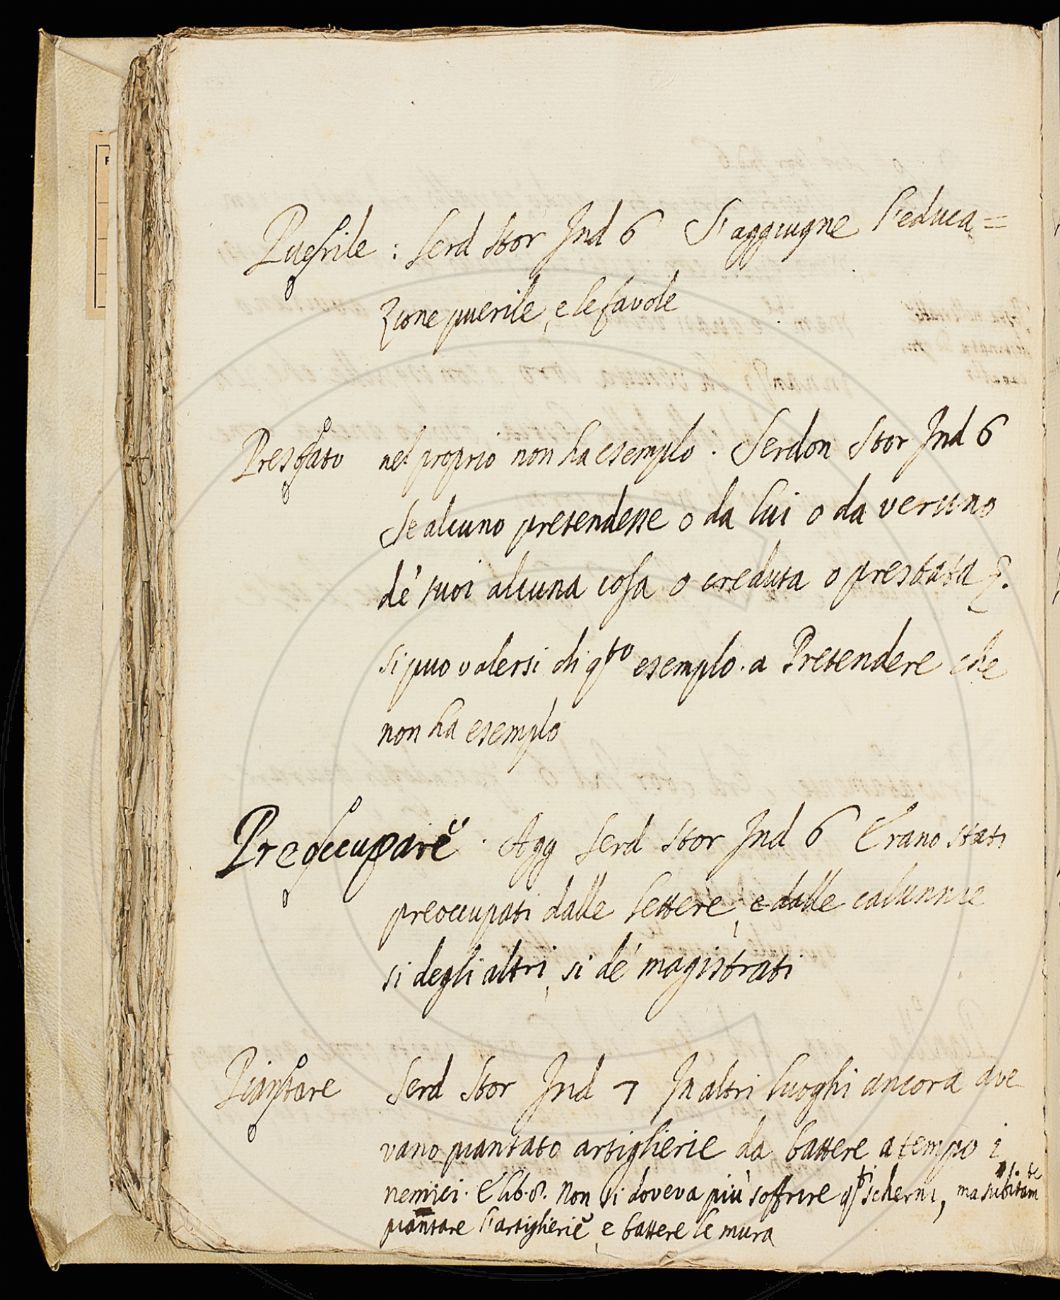 Puerile : Serd Stor Ind 6 S'aggiugne l'educa=
zione puerile, e le favole
Prestato nel proprio non ha esemplo. Serdon Stor Ind 6
Se alcuno pretendesse o da lui o da veruno
de' suoi alcuna cosa o creduta o prestata
si puo valersi di qto esemplo. a Pretendere che
non ha esemplo
Preoccupare . Agg Serd Stor Ind 6 Erano stati
preoccupati dalle lettere, e dalle calunnie
si degli altri, si de' magistrati
Piantare Serd Stor Ind 7 In altri luoghi ancora ave
vano piantato artiglierie da battere a tempo i
nemici. E lib. 8. Non si doveva più soffrire qti scherni, ma subitam.te
piantare l'artiglierie, e battere le mura